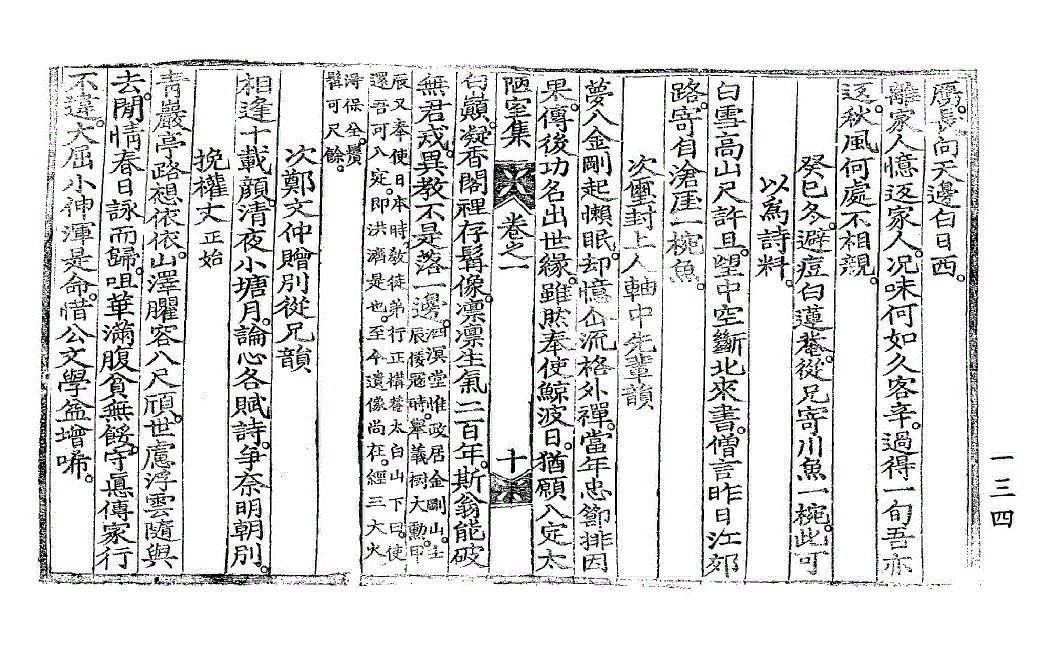 鴈長向天邊白日西
離家人憶返家人況味何如久客辛過得一旬吾亦
返秋風何處不相親
癸巳冬避痘白蓮菴從兄寄川魚一椀此可
以爲詩料
白雪高山尺許且望中空斷北來書僧言昨日江郊
路寄自滄厓一椀魚
次璽封上人軸中先輩韻
夢八金剛起懶眠却憶岀流格外禪當年忠節排因
果傳後功名出世緣雖然奉使鯨波日猶願入定太
陋室集 卷之一 十
白巓凝香閣裡存髯像凛凛生氣二百年斯翁能破
無君戒異敎不是落一邊泗溟堂惟政居金剛山壬
辰倭冦時擧義樹大勳甲
辰又奉使日本時敎徒弟行正構菴太白山下曰使
還吾可入定即洪濟是也至今遺像尚在經三大火
得保全鬚
髯可尺餘
次鄭文仲贈別從兄韻
相逢十載顔淸夜小塘月論心各賦詩爭奈明朝別
挽權丈正始
靑巖亭路想依依山澤臞容八尺頎世慮浮雲隨與
去閒情春日詠而歸咀華滿腹貧無餒守愚傳家行
不違大屈小伸渾是命惜公文學益增唏
一三四